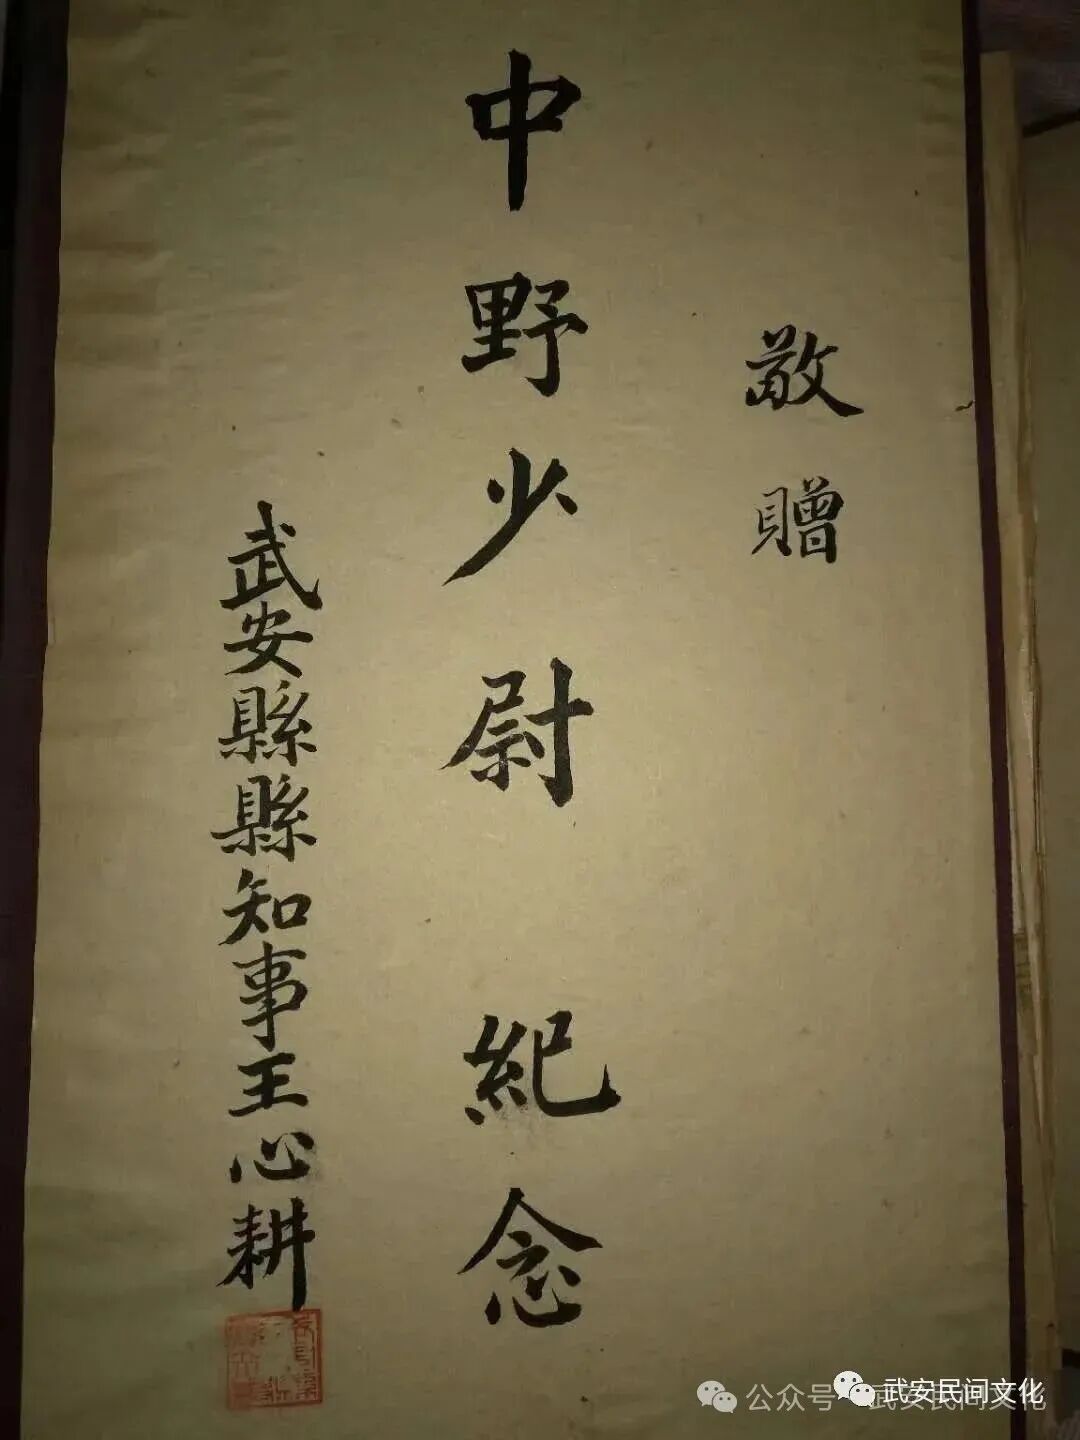 敬贈
中野少尉 紀念
武安縣縣知事王心耕
公众号 武安民间文化
武安民间文化